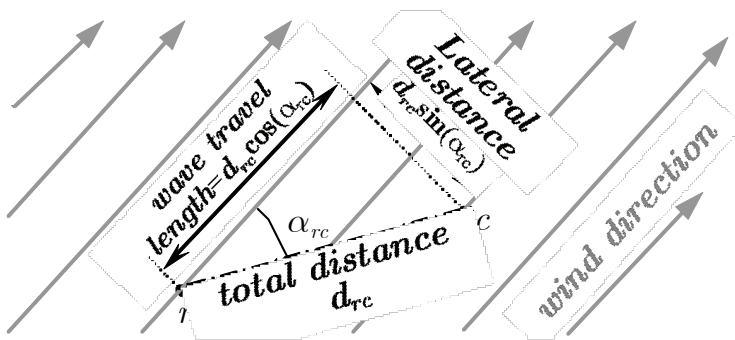 wave travel
length=d_rc cos(α_rc)
Lateral
distance
d_rc sin(α_rc)
α_rc
c
total distance
d_rc
r
wind direction